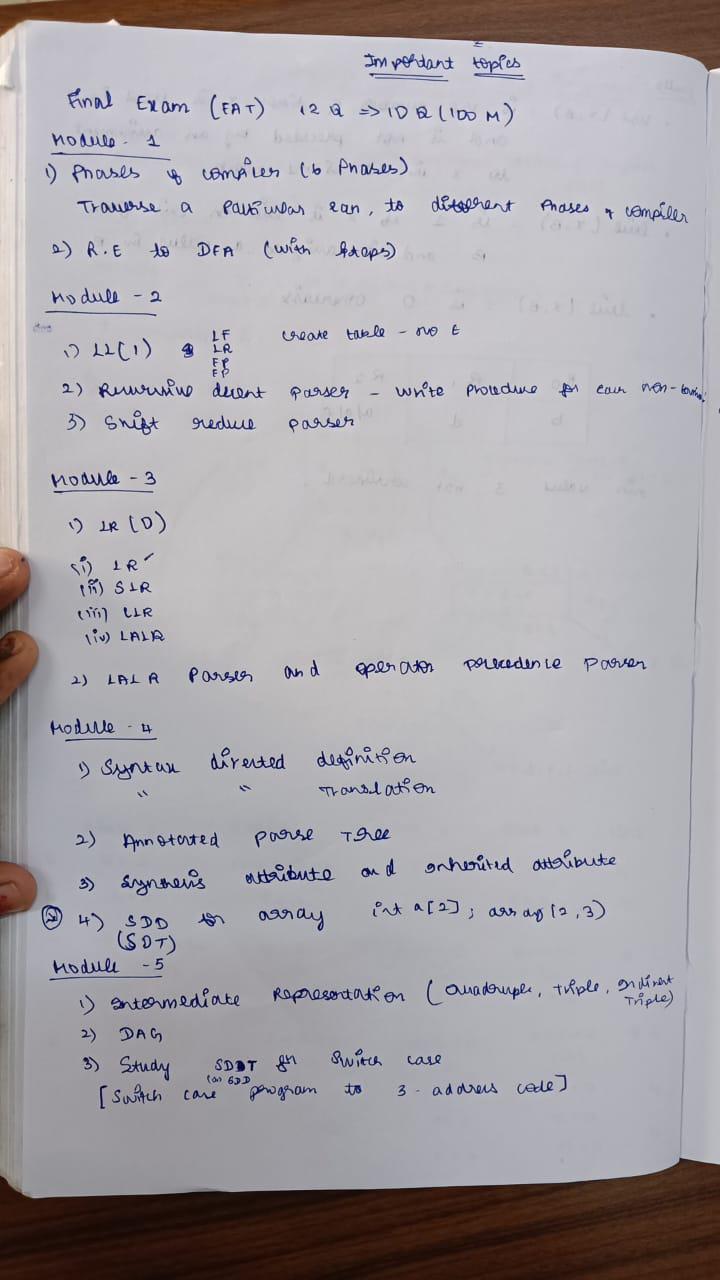 Important topics
Final Exam (FAT) 12 Q => 10 Q (100 M)
Module - 1
1) Phases of compiler (6 Phases)
Traverse a particular eqn, to different Phases of compiler
2) R.E to DFA (with steps)
Module - 2
1) LL(1) LF create table - no E
LR
FP
FP
2) Recursive decent parser - write procedure for each non-
3) Shift reduce parser
Module - 3
1) LR (0)
(i) LR
(ii) SLR
(iii) CLR
(iv) LALR
2) LALR Parser and operator precedence parser
Module - 4
1) Syntax directed definition
" " Translation
2) Annotated parse tree
3) Synthesis attribute and inherited attribute
4) SDD for array int a[2]; array (2, 3)
(SDT)
Module - 5
1) Intermediate Representation (Quadruple, Triple, Indirect
Triple)
2) DAG
3) Study SDT for Switch case
(or) SDD
[Switch case program to 3 - address code]